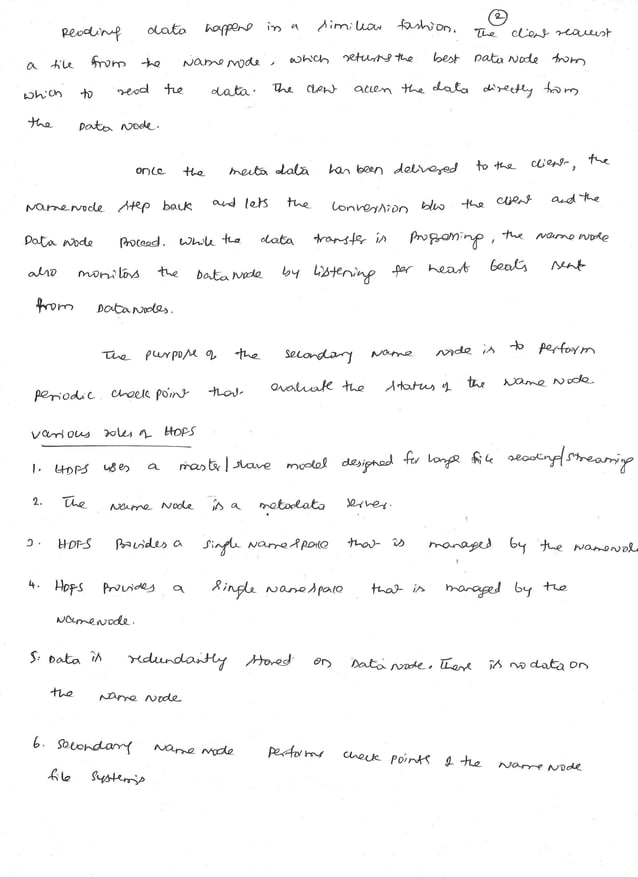 2
Reading data happens in a similar fashion. The client request
a file from the NameNode, which returns the best DataNode from
which to read the data. The client access the data directly from
the Data Node.
once the meeta data has been delivered to the client, the
NameNode step back and lets the conversion b/w the client and the
Data Node Proceed. While the data transfer is progressing, the NameNode
also monitors the DataNode by listening for heart beats sent
from DataNodes.
The purpose of the secondary Name node is to perform
periodic check point that evaluate the status of the Name Node
various roles of HDFS
1. HDFS uses a master/slave model designed for large file reading/streaming
2. The Name Node is a metadata server.
3. HDFS Provides a single Namespace that is managed by the NameNode
4. HDFS Provides a single Namespace that is managed by the
NameNode.
5. Data is redundantly stored on DataNode. There is no data on
the Name Node
6. Secondary NameNode performs check points of the NameNode
file system's